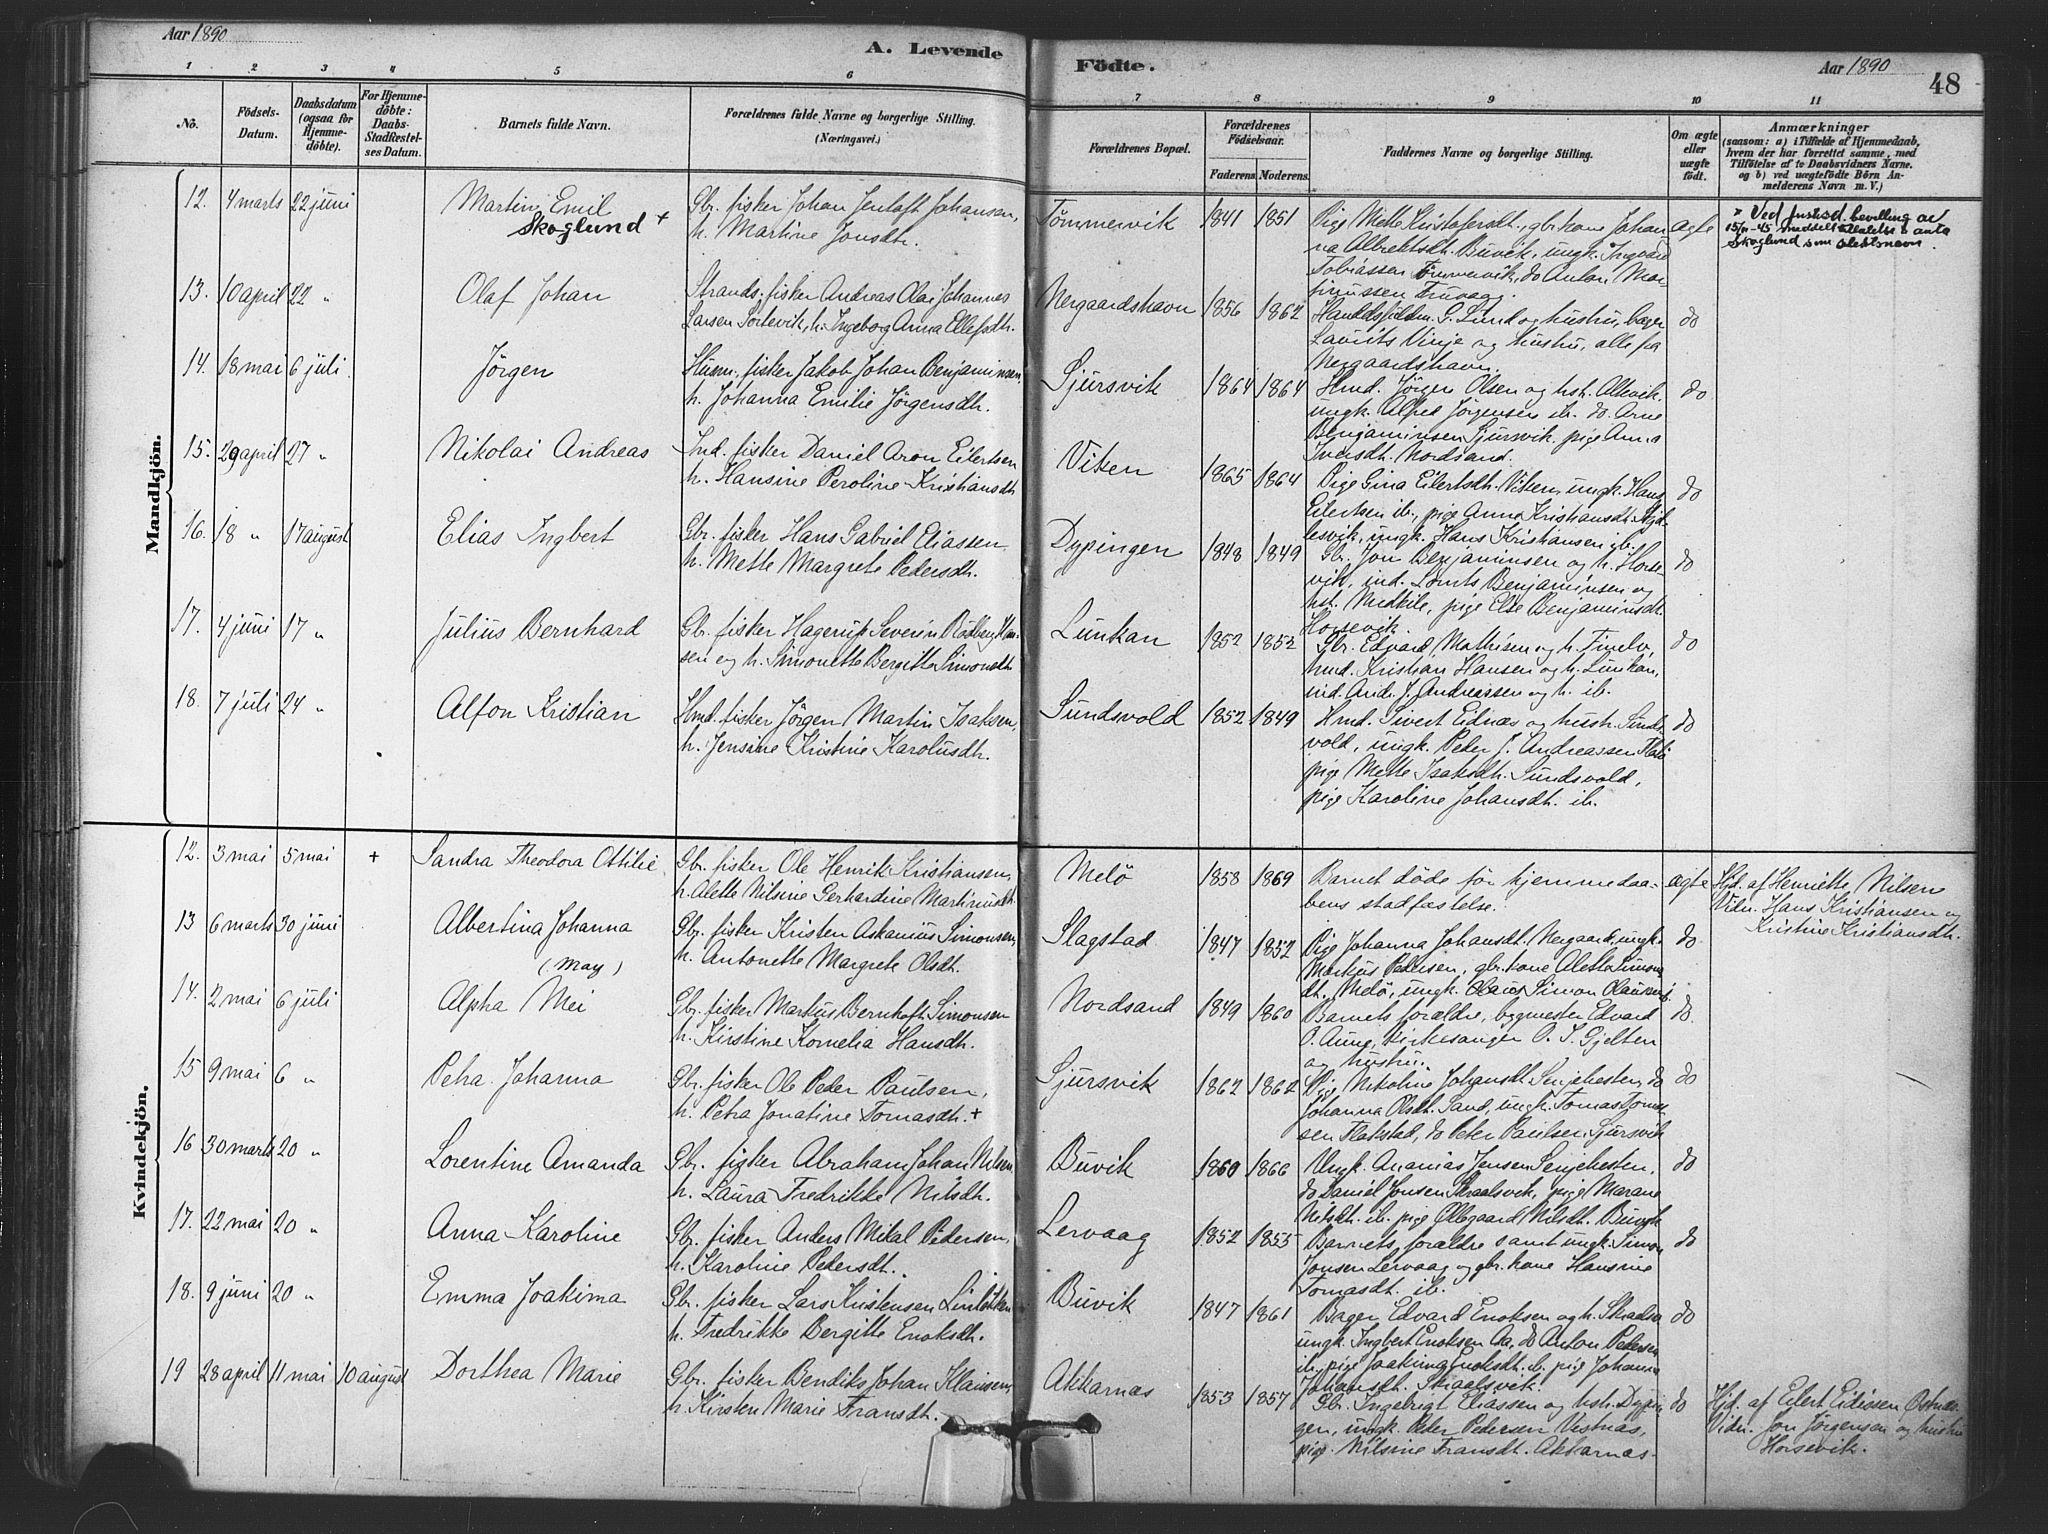 Aar 1890
A. Levende
Födte.
Aar 1890
48
1 2 3 4 5 6 7 8 9 10 11
No.
Födsels-Datum.
Daabsdatum (ogsaa for Hjemmedöbte).
For Hjemmedöbte: Daabs-Stadfæstelses Datum.
Barnets fulde Navn.
Forældrenes fulde Navne og borgerlige Stilling.
(Næringsvei.)
Forældrenes Bopæl.
Forældrenes Födselsaar.
Faderens. Moderens.
Faddernes Navne og borgerlige Stilling.
Om ægte eller uægte födt.
Anmærkninger
(saasom: a) i Tilfælde af Hjemmedaab, hvem der har forrettet samme, med Tilföielse af to Daabsvidners Navne. og b) ved uægtefödte Börn Anmelderens Navn m. V.)
Mandkjön.
12. 4 marts 22 juni Martin Emil Skoglund +
Gbr. fisker Johan Jentoft Johansen,
h. Martine Jonsdtr.
Tömmervik 1841 1851
Pige Mette Kristofersdt., gbr. kone Johan
na Albrektsdt. Buvik, ungk. Ingvard
Tobiassen Tömmervik, do Anton Mar-
tinussen Truvaag.
ægte
+ Ved bevilling av
15/11-45 meddelt tillatelse å anta
Skoglund som slektsnavn.
13. 10 april 22 " Olaf Johan
Strands. fisker Andreas Olai Johannes
Larsen Sortevik, h. Ingeborg Anna Ellefsdtr.
Nergaardshavn 1856 1862
Handelsfuldm. G. Lund og hustru, bager
Laurits Vinje og hustru, alle fra
Nergaardshavn.
do
14. 18 mai 6 juli. Jörgen
Husm. fisker Jakob Johan Benjaminsen,
h. Johanna Emilie Jörgensdtr.
Sjursvik 1864 1864
Hmd. Jörgen Olsen og hst. Altevik,
ungk. Alfred Jörgensen ib. do. Arne
Benjaminsen Sjursvik, pige Anna
Iversdt. Nordsand.
do
15. 29 april 27 " Nikolai Andreas
Ind. fisker Daniel Aron Eilertsen
h. Hansine Peroline Kristiansdtr.
Viken 1865 1864
Pige Gina Eilertsdt. Viken, ungk. Hans
Eilertsen ib., pige Anna Kristiansdt.
ungk. Hans Kristiansen ib.
do
16. 18 " 17 august Elias Ingbert
Gbr. fisker Hans Gabriel Eliassen
h. Mette Margrete Pedersdt.
Dypingen 1848 1849
Gbr. Jon Benjaminsen og h. Horse-
vik, ind. Lorents Benjaminsen og
hst. Medkile, pige Else Benjaminsdt.
Horsevik.
do
17. 4 juni 17 " Julius Bernhard
Gbr. fisker Hagerup Severin Rödberg Han-
sen og h. Simonette Bergitte Simonsdt.
Lunkan 1852 1853
Gbr. Edvard Mathisen og h.
hmd. Kristian Hansen og h. Lunkan,
ind. And. J. Andreassen og h. ib.
do
18. 7 juli 24 " Alfon Kristian
Hmd. fisker Jörgen Martin Isaksen,
h. Jensine Kristine Karolusdt.
Sundsvold 1852 1849
Hmd. Sivert Eidnæs og hust. Sunds-
vold, ungk. Peder J. Andreassen
pige Mette Isaksdt. Sundsvold,
pige Karoline Johansdt. ib.
do
Kvindekjön.
12. 3 mai 5 mai + Sandra Theodora Ottilie
Gbr. fisker Ole Henrik Kristiansen,
h. Alette Nilsine Gerhardine Martinusdt.
Melö 1858 1869
Barnet döde för hjemmedaa-
bens stadfæstelse.
ægte
Hjd. af Henriette Nilsen
Vidn. Hans Kristiansen og
Kristine Kristiansdt.
13 6 marts 30 juni Albertina Johanna
Gbr. fisker Kristen Askanius Simonsen,
h. Antonette Margrete Olsdt.
Slagstad 1847 1852
Pige Johanna Johansdt. Nergaard, ungk.
Markus Pedersen, gbr. kone Aletta Simons
dt. Melö, ungk. Olaus Simon Olausen ib.
do
14. 2 mai 6 juli (May) Alpha Mei
Gbr. fisker Markus Bernhoft Simonsen
h. Kirstine Kornelia Hansdt.
Nordsand 1849 1860
Barnets forældre, bygmester Edvard
O. Aune, kirkesanger O. J. Gjelten
og hustru.
do.
15 9 mai 6 " Petra Johanna
Gbr. fisker Ole Peder Paulsen,
h. Petra Jonatine Tomasdt. +
Sjursvik 1862 1862
Pige Nikoline Johansdt. Senjehesten, do
Johanna Olsdt. Sand, ungk. Tomas Tomas-
sen Flakstad, do Peter Paulsen Sjursvik
do
16 30 marts 20 " Lorentine Amanda
Gbr. fisker Abraham Johan Nilsen,
h. Laura Fredrikke Nilsdt.
Buvik 1860 1866
Ungk. Ananias Jensen Senjehesten,
do Daniel Jonsen Skraalsvik, pige Marane
Nilsdt. ib. pige Ollegaard Nilsdt. Buvik
do
17. 22 mai 20 " Anna Karoline
Gbr. fisker Anders Mikal Pedersen,
h. Karoline Pedersdt.
Lervaag 1852 1855
Barnets forældre samt ungk. Simon
Jonsen Lervaag og gbr. kone Hansine
Tomasdt. ib.
do
18. 9 juni 20 " Emma Joakima
Gbr. fisker Lars Kristensen
h. Fredrikke Bergitte Enoksdt.
Buvik 1847 1861
Bager Edvard Enoksen og h.
ungk. Ingbert Enoksen Aa, do Anton Petersen
ib., pige Joakima Enoksdt. ib. pige Johanna
Johansdt. Skraalsvik.
do
19 28 april 11 mai 10 august Dorthea Marie
Gbr. fisker Bendiks Johan Klausen,
h. Kirsten Marie Fransdt.
Akkarnæs 1853 1857
Gbr. Ingebrigt Eliassen og hst. Dypin
gen, ungk. Peder Pedersen Vestnæs,
pige Nilsine Fransdt. Akkarnæs.
do
Hjd. af Eilert Eidissen
Vidn. Jon Jörgensen og hustru
Horsevik.